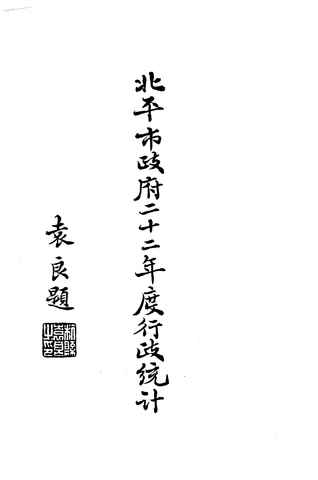 北平市政府二十二年度行政統計
袁良題